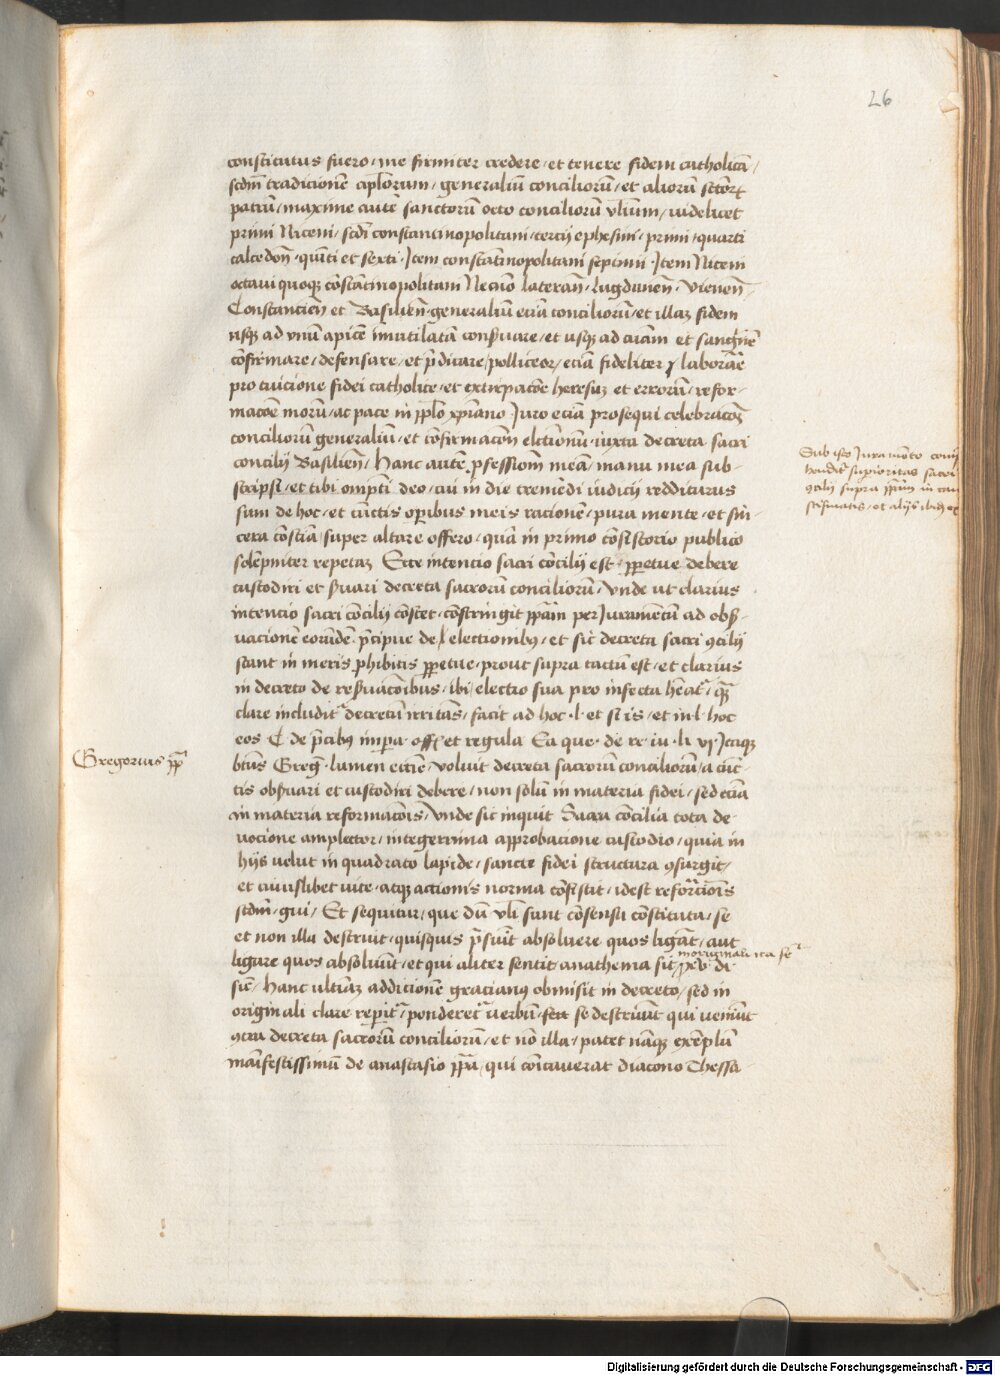 26
constitutus fuero / me firmiter credere / et tenere fidem catholicā /
scdm̄ tradicionē apl̄orum / generaliū conciliorū / et aliorū sctōrꝝ
patrū / maxime autē sanctorū octo conciliorū vl̄ium / videlicet
primi Niceni / scd̄i constantinopolitani / tercij ephesini / primi / quarti
calcedon̄ · quīti et sexti · Item constātinopolitani septimi · Item Niceni
octaui quoqꝫ cōstātinopolitani Necnō lateran̄ · lugdunen̄ · Vienen̄ ·
Constancien̄ et Basilien̄ · generaliū eciā conciliorū / et illaꝫ fidem
usqꝫ ad vnū apicē īmutilatā conseruare / et usqꝫ ad aīam et sanguinē
cōfirmare / defensare / et p̄dicare / polliceor / eciā fideliter laborare
pro tuicione fidei catholice / et extirpacōe heresuꝫ et errorū / refor-
macōe morū / ac pace in ppl̄o xp̄iano · Iuro eciā prosequi celebracōꝫ
conciliorū generaliū / et cōfirmacōn̄ elctionū / iuxta decreta sacri
concilij Basilien̄ / Hanc autē ꝓfessionē meā / manu mea sub-
scripsi / et tibi omp̄ti deo / cui in die tremēdi iudicij redditurus
sum de hoc / et cūctis oꝑibus meis racionē / pura mente / et sin-
cera cōsciā / super altare offero / quā in primo cōsistorio publico
solēpniter repetaꝫ Ecce intencio sacri cōcilij est / ꝑpetue debere
custodiri et ẜuari decreta sacrorū conciliorū / Vnde ut clarius
intencio sacri cōcilij cōstet / cōstringit pp̄am per Iuramētū ad obẜ-
uacionē eorundē / p̄cipue de electionibꝫ / et sic decreta sacri ꝯcilij
stant in meris ꝓhibitis ꝑpetue / prout supra tactū est / et clarius
in decreto de reẜuacōibus / ibi / electio sua pro infecta hēat̄ʳ / q̄
clare includit̄ʳ decretū irritās / facit ad hoc · l · et si is / et in · l · hoc
eos C de p̄cibꝫ impa · off et regula Ea que · de re · iu · li · vj · Itaqꝫ
bt̄us Greg̅ · lumen eccīe / voluit decreta sacrorū conciliorū / a cūc-
tis obẜuari et custodiri debere / non solū in materia fidei / sed eciā
in materia reformacōis / Vnde sic inquit Sacra cōcilia tota de
uocione amplector / integerrima approbacione custodio / quia in
hijs uelut in quadrato lapide / sancte fidei structura ꝯsurgit /
et cuiuslibet uite · atqꝫ actionis norma cōsistit / idest reforcīois
scdm̄ · gui / Et sequitur / que dū vl̄i sunt cōsensu cōstituta / se
et non illa destruit / quisquis p̄sūit absoluere quos ligāt / aut
ligare quos absoluūt / et qui aliter sentit anathema sit / xv · di
sic̄ / Hanc ultimā addicionē gracianus obmisit in decreto / sed in
originali clare reperit̄ʳ / ponderet̄ʳ uerbū · se destruūt qui veniūt
ꝯtra decreta sacrorū conciliorū / et nō illa / patet nāqꝫ exēplū
manifestissimū de anastasio pp̄a / qui cōicauerat diacono Thessa-
Sub isto Iuramēto
superioritas sacri
ꝯcilij supra pp̄am in
scismatis / et alijs
Gregorius pp̄
in originali ita